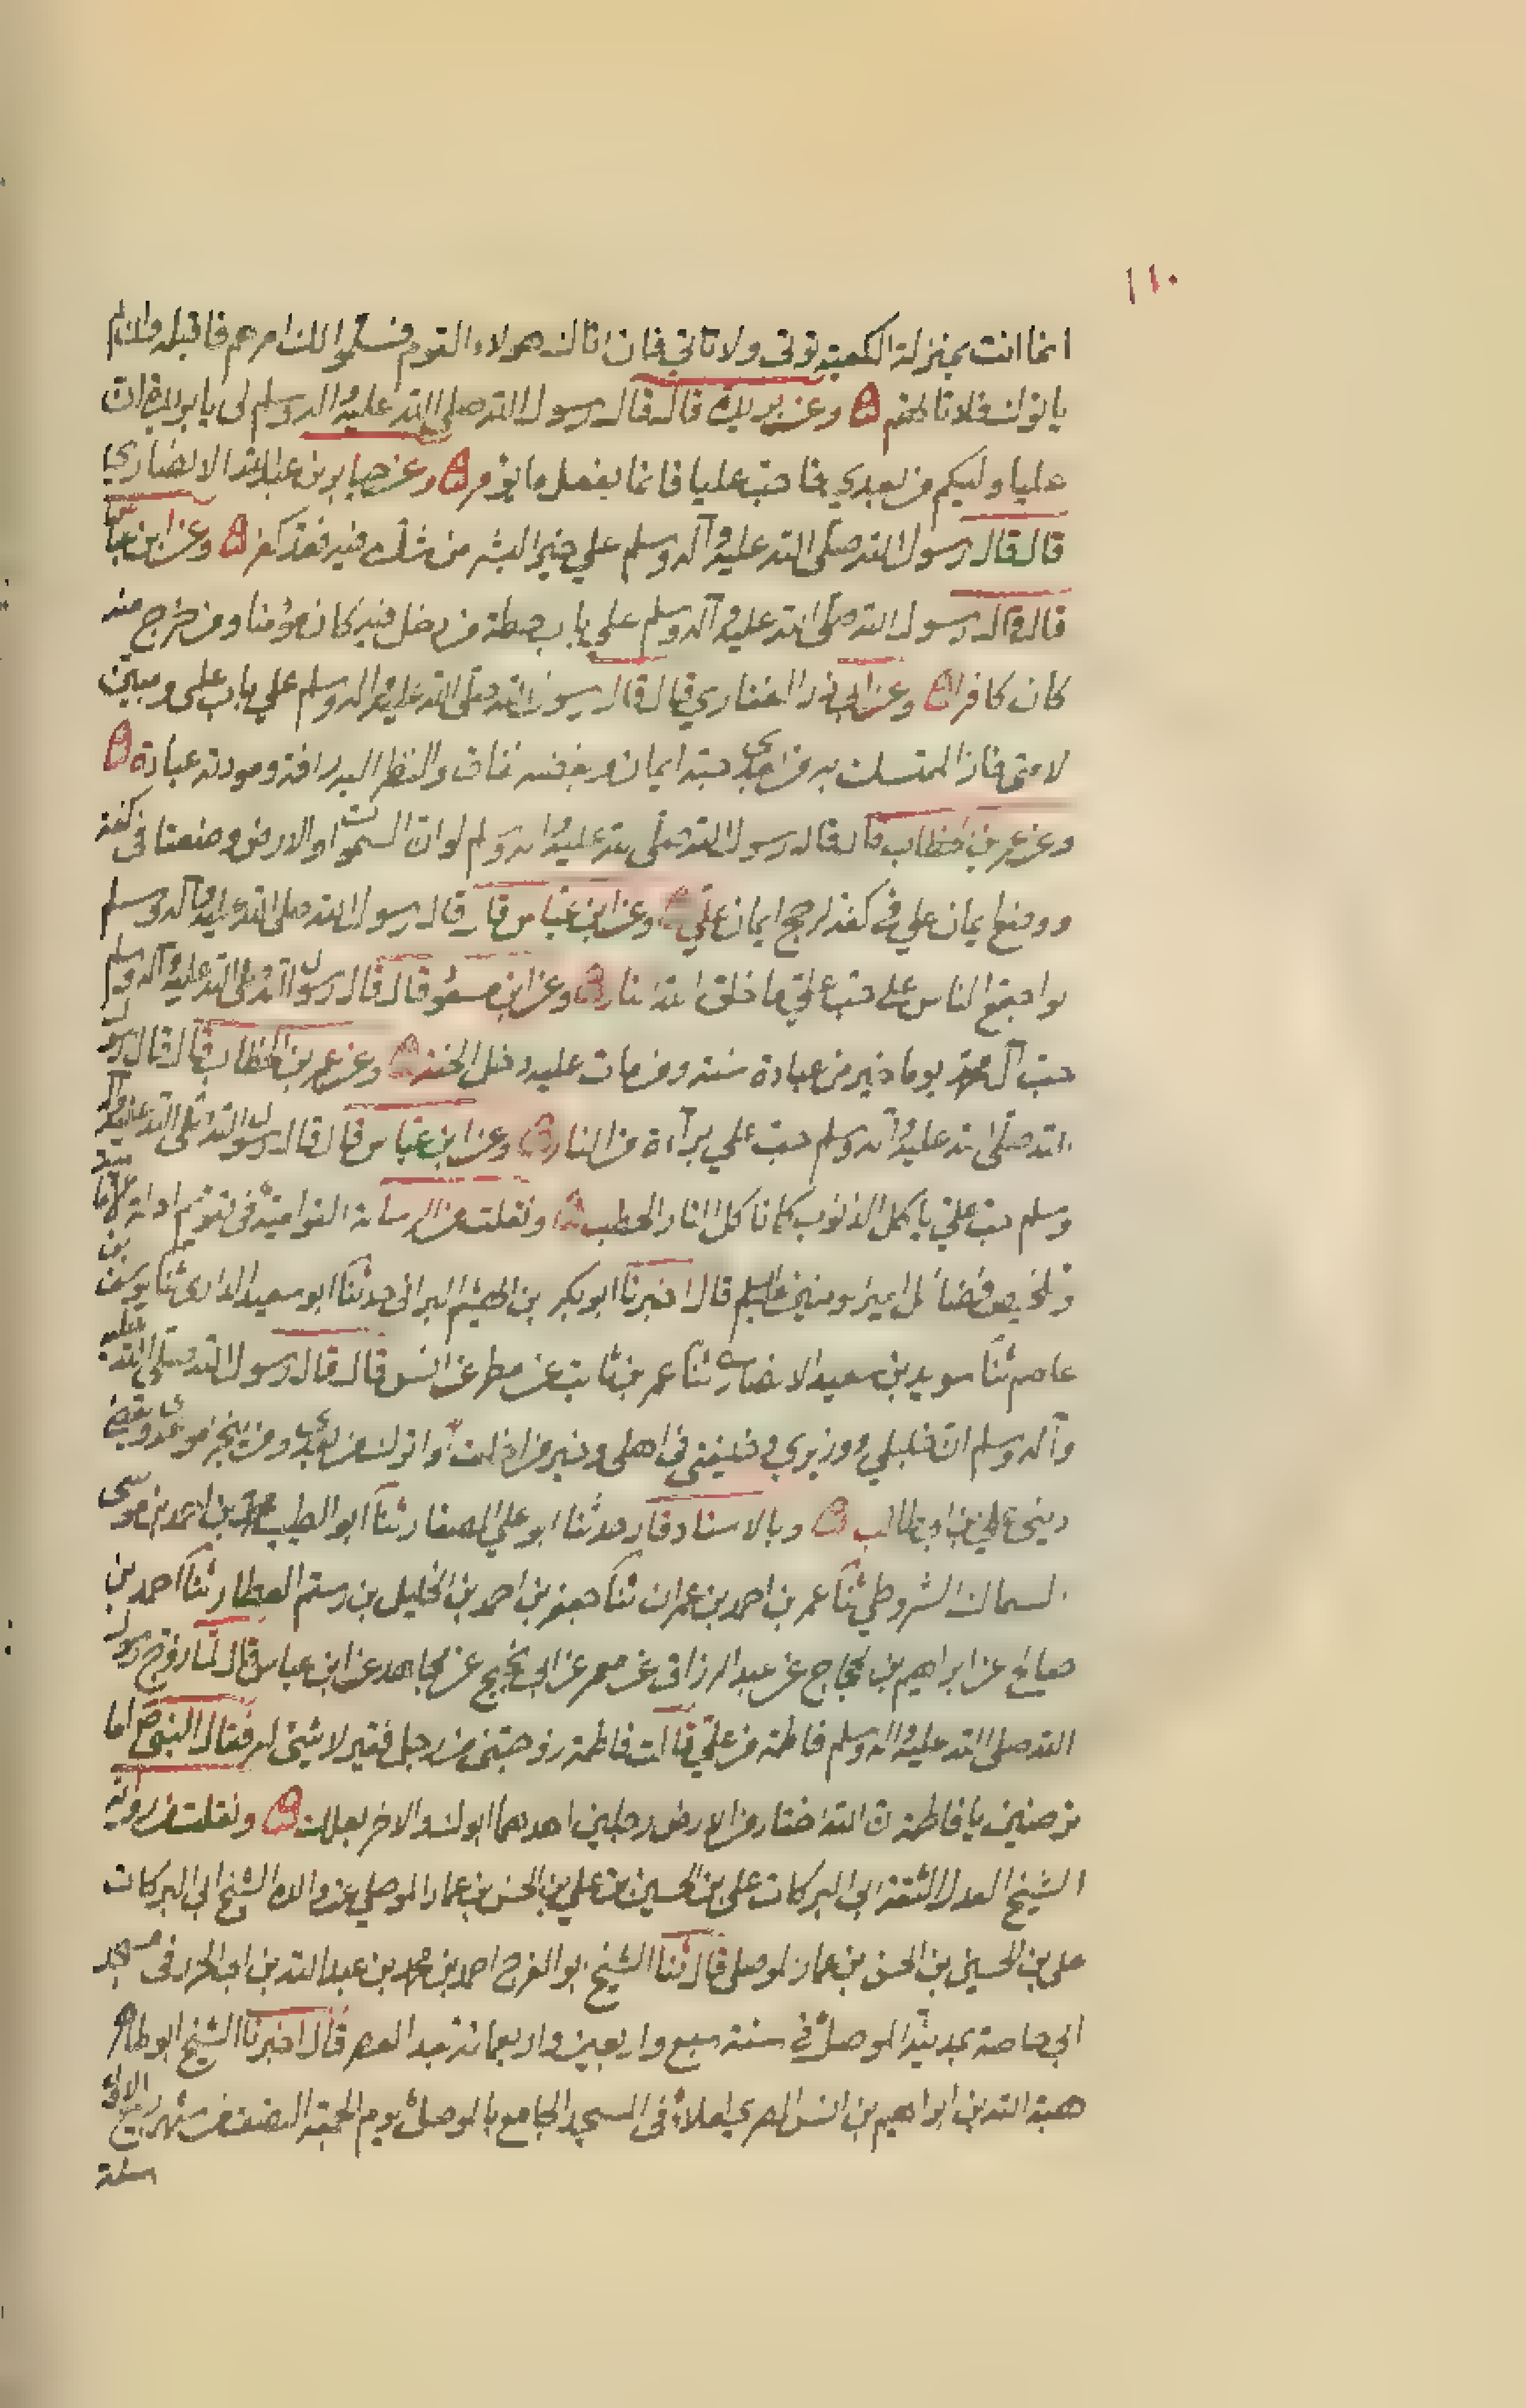 ١١٠
انما انت بمنزلة الكعبة تؤتى ولا تاتي فان اتاك هولاء القوم فسلموا لك امرهم فاقبله وان لم
ياتوك فلا تاتهم وعن بريدة قال قال رسول الله صلى الله عليه واله وسلم لى يا بريدة ان
عليا وليكم من بعدي فاحب عليا فانما يفعل ما يؤمر وعن جابر بن عبدالله الانصاري
قال قال رسول الله صلى الله عليه وآله وسلم علي خير البشر من شك فيه فقد كفر وعن ابن عباس
قال قال رسول الله صلى الله عليه وآله وسلم علي باب حطة من دخل فيه كان مؤمنا ومن خرج منه
كان كافرا وعن ابي ذر الغفاري قال قال رسول الله صلى الله عليه واله وسلم علي باب علمي ومبين
لامتي ما ارسلت به من بعدي حبه ايمان وبغضه نفاق والنظر اليه رافة ومودته عبادة
وعن عمر بن الخطاب قال قال رسول الله صلى الله عليه واله وسلم لو ان السموات والارض وضعتا فى كفة
ووضع ايمان علي في كفة لرجح ايمان علي وعن ابن عباس قال قال رسول الله صلى الله عليه وآله وسلم
لو اجتمع الناس على حب علي ما خلق الله النار وعن ابن مسعود قال قال رسول الله صلى الله عليه وآله وسلم
حب آل محمد يوما خير من عبادة سنة ومن مات عليه دخل الجنة وعن عمر بن الخطاب قال قال رسول
الله صلى الله عليه وآله وسلم حب علي برآءة من النار وعن ابن عباس قال قال رسول الله صلى الله عليه وآله
وسلم حب علي ياكل الذنوب كما تاكل النار الحطب ونقلت من الرسالة القوامية فى تقويم ادلة الامامية
وتلخيص فضائل امير المومنين عليه السلم قال اخبرنا ابو بكر بن الهيثم البراني حدثنا ابو سعيد الداري ثنا يوسف بن
عاصم ثنا سويد بن سعيد الانصاري ثنا عمر بن ثابت عن مطر عن انس قال قال رسول الله صلى الله عليه
وآله وسلم ان خليلي ووزيري وخليفتي في اهلى وخير من اخلف واترك من بعدي ومن ينجز موعدي ويقضي
ديني علي بن ابي طالب وبالاسناد قال حدثنا ابو علي الصفار ثنا ابو الطيب محمد بن احمد بن موسى
السماك الشروطي ثنا عمر بن احمد بن عمران ثنا جعفر بن احمد بن الخليل بن رستم العطار ثنا احمد بن
صالح عن ابراهيم بن الحجاج عن عبد الرزاق عن معمر عن ابي نجيح عن مجاهد عن ابن عباس قال لما زوج رسول
الله صلى الله عليه واله وسلم فاطمة من علي قالت فاطمة زوجتني من رجل فقير لا شيئ له فقال النبي ص اما
ترضين يا فاطمة ان الله اختار من الارض رجلين احدهما ابوك والاخر بعلك ونقلت من رواية
الشيخ العدل الثقة ابى البركات على بن الحسين بن علي بن الحسن بن عمار الموصلي عن والده الشيخ ابى البركات
على بن الحسين بن الحسن بن عمار الموصلى قال ثنا الشيخ ابو الفرج احمد بن محمد بن عبدالله بن ابي الحرد فى مسجد
ابي حاصة بمدينة الموصل في سنة سبع واربعين واربعمائة بعد العصر قال اخبرنا الشيخ ابو طاهر
هبة الله بن ابراهيم بن انس المصري املاء فى المسجد الجامع بالموصل يوم الجمعة النصف من شهر ربيع الاول
سنة